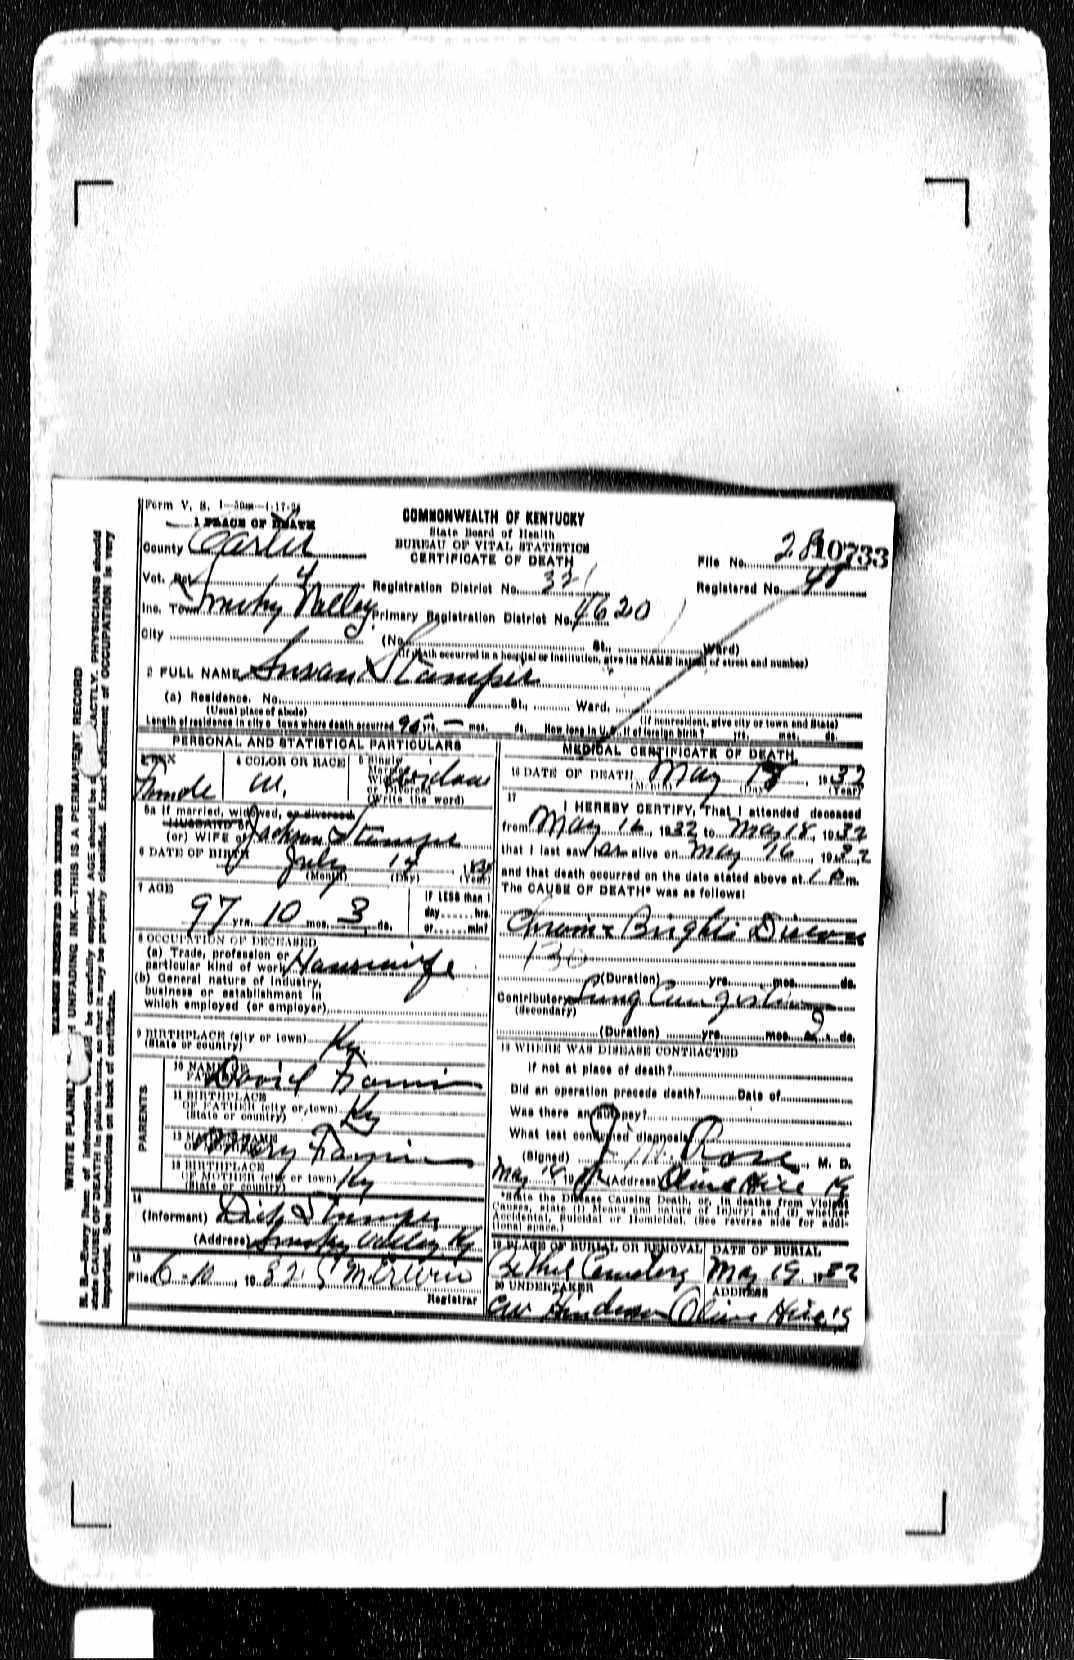 Form V. S. 1—50m—1-17-
COMMONWEALTH OF KENTUCKY
State Board of Health
BUREAU OF VITAL STATISTICS
CERTIFICATE OF DEATH
1 PLACE OF DEATH
County Carter
File No. 28 10733
Vot. Pct. 4 Registration District No. 32 Registered No. 48
Inc. Town Smoky Valley Primary Registration District No. 4620
City (No. St., Ward)
(If death occurred in a hospital or institution, give its NAME instead of street and number)
2 FULL NAME Susan Stamper
(a) Residence. No. St., Ward.
(Usual place of abode) (If nonresident, give city or town and State)
Length of residence in city or town where death occurred yrs. — mos. ds. How long in U. S., if of foreign birth? yrs. mos. ds.
PERSONAL AND STATISTICAL PARTICULARS
3 SEX
Female
4 COLOR OR RACE
W.
5 Single
(Write the word)
5a If married, widowed, or divorced
HUSBAND of
(or) WIFE of Jackson Stamper
6 DATE OF BIRTH July
(Month) (Day) (Year)
7 AGE
97 yrs. 10 mos. 3 ds.
If LESS than 1
day......hrs.
or......min?
8 OCCUPATION OF DECEASED
(a) Trade, profession or
particular kind of work Housewife
(b) General nature of industry,
business or establishment in
which employed (or employer)
9 BIRTHPLACE (city or town)
(State or country) Ky.
PARENTS
10 NAME OF
FATHER David
11 BIRTHPLACE
OF FATHER (city or town)
(State or country) Ky
12 MAIDEN NAME
OF MOTHER Mary
13 BIRTHPLACE
OF MOTHER (city or town)
(State or country) Ky
14
(Informant) Dick Stamper
(Address) Smoky Valley Ky
15
Filed 6-10, 1932
Registrar
MEDICAL CERTIFICATE OF DEATH
16 DATE OF DEATH May 18, 1932
(Month) (Day) (Year)
17
I HEREBY CERTIFY, That I attended deceased
from May 16, 1932 to May 18, 1932
that I last saw her alive on May 16, 1932
and that death occurred on the date stated above at 1 P.m.
The CAUSE OF DEATH* was as follows:
Chronic Brights Disease
130
(Duration) yrs. mos. ds.
Contributory Lung Congestion
(Secondary)
(Duration) yrs. mos. 2 ds.
18 WHERE WAS DISEASE CONTRACTED
if not at place of death?
Did an operation precede death? Date of
Was there an autopsy?
What test confirmed diagnosis
(Signed) Rose, M. D.
May 18, 19 (Address) Olive Hill Ky
*State the Disease Causing Death, or, in deaths from Violent
Causes, state (1) Means and nature of Injury; and (2) whether
Accidental, Suicidal or Homicidal. (See reverse side for addi-
tional space.)
19 PLACE OF BURIAL OR REMOVAL
Bethel Cemetery
DATE OF BURIAL
May 19, 1932
20 UNDERTAKER
Henderson
ADDRESS
Olive Hill Ky
MARGIN RESERVED FOR BINDING
UNFADING INK—THIS IS A PERMANENT RECORD